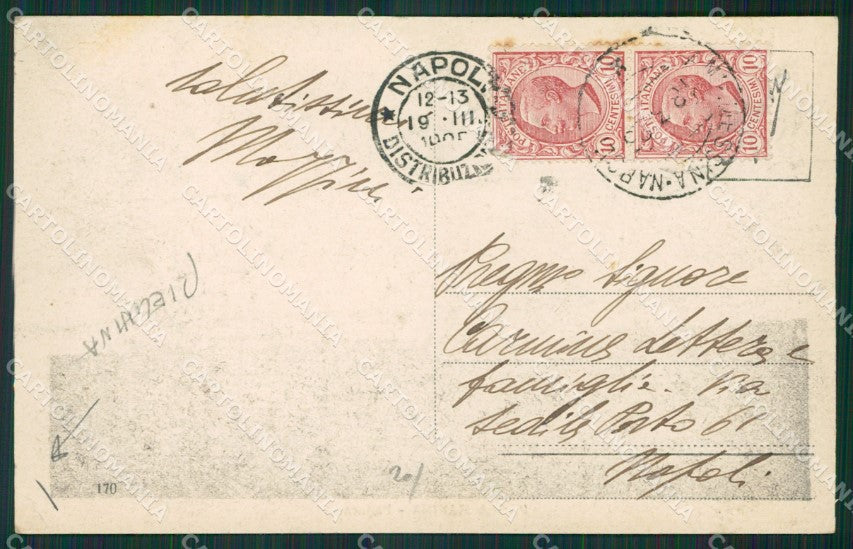 salutissimi
NAPOLI
12-13
19 · III
DISTRIBUZ
POSTE ITALIANE
10 CENTESIMI 10
POSTE ITALIANE
10 CENTESIMI 10
NAPOLI
Pregmo Signore
Carmine Lettera e
famiglia. Via
Sedile Porto 61
Napoli
170
20/
CARTOLINOMANIA